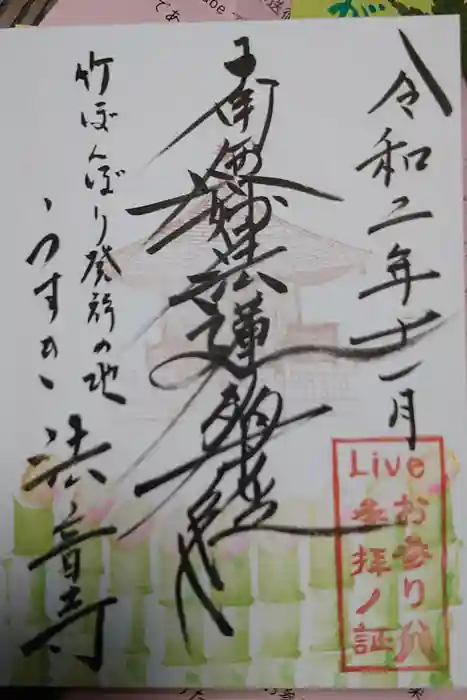 令和二年十一月
南無妙法蓮華経
竹ぼんぼり発祥の地
うすき
法音寺
Live
お参り代
参拝ノ証